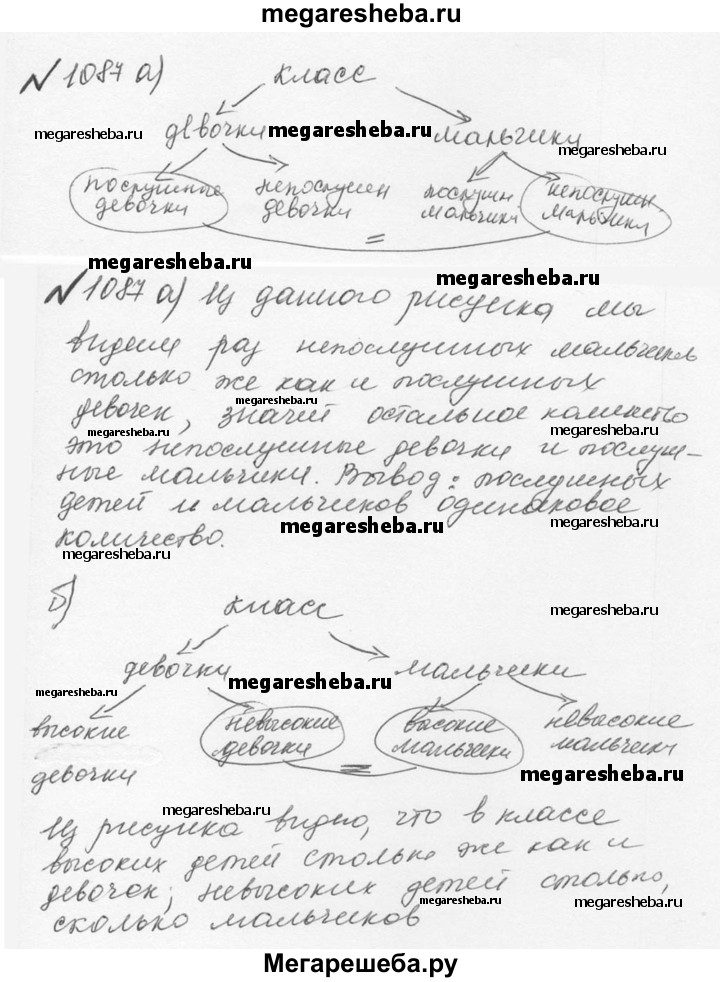 megaresheba.ru
№ 1087 а) класс
megaresheba.ru девочки megaresheba.ru мальчики megaresheba.ru
послушные непослушн послушн непослушн.
девочки девочки мальчики мальчики
=
megaresheba.ru megaresheba.ru
№ 1087 а) Из данного рисунка мы
видим раз непослушных мальчиков
столько же как и послушных
девочек, значит остальное количество
megaresheba.ru megaresheba.ru
это непослушные девочки и послуш-
ные мальчики. Вывод: послушных
детей и мальчиков одинаковое
количество. megaresheba.ru megaresheba.ru
megaresheba.ru
б) класс megaresheba.ru
девочки megaresheba.ru мальчики
megaresheba.ru megaresheba.ru
высокие невысокие высокие невысокие
девочки девочки мальчики мальчики
=
megaresheba.ru
megaresheba.ru
Из рисунка видно, что в классе
высоких детей столько же как и
девочек; невысоких детей столько,
сколько мальчиков
megaresheba.ru megaresheba.ru
Мегарешеба.ру